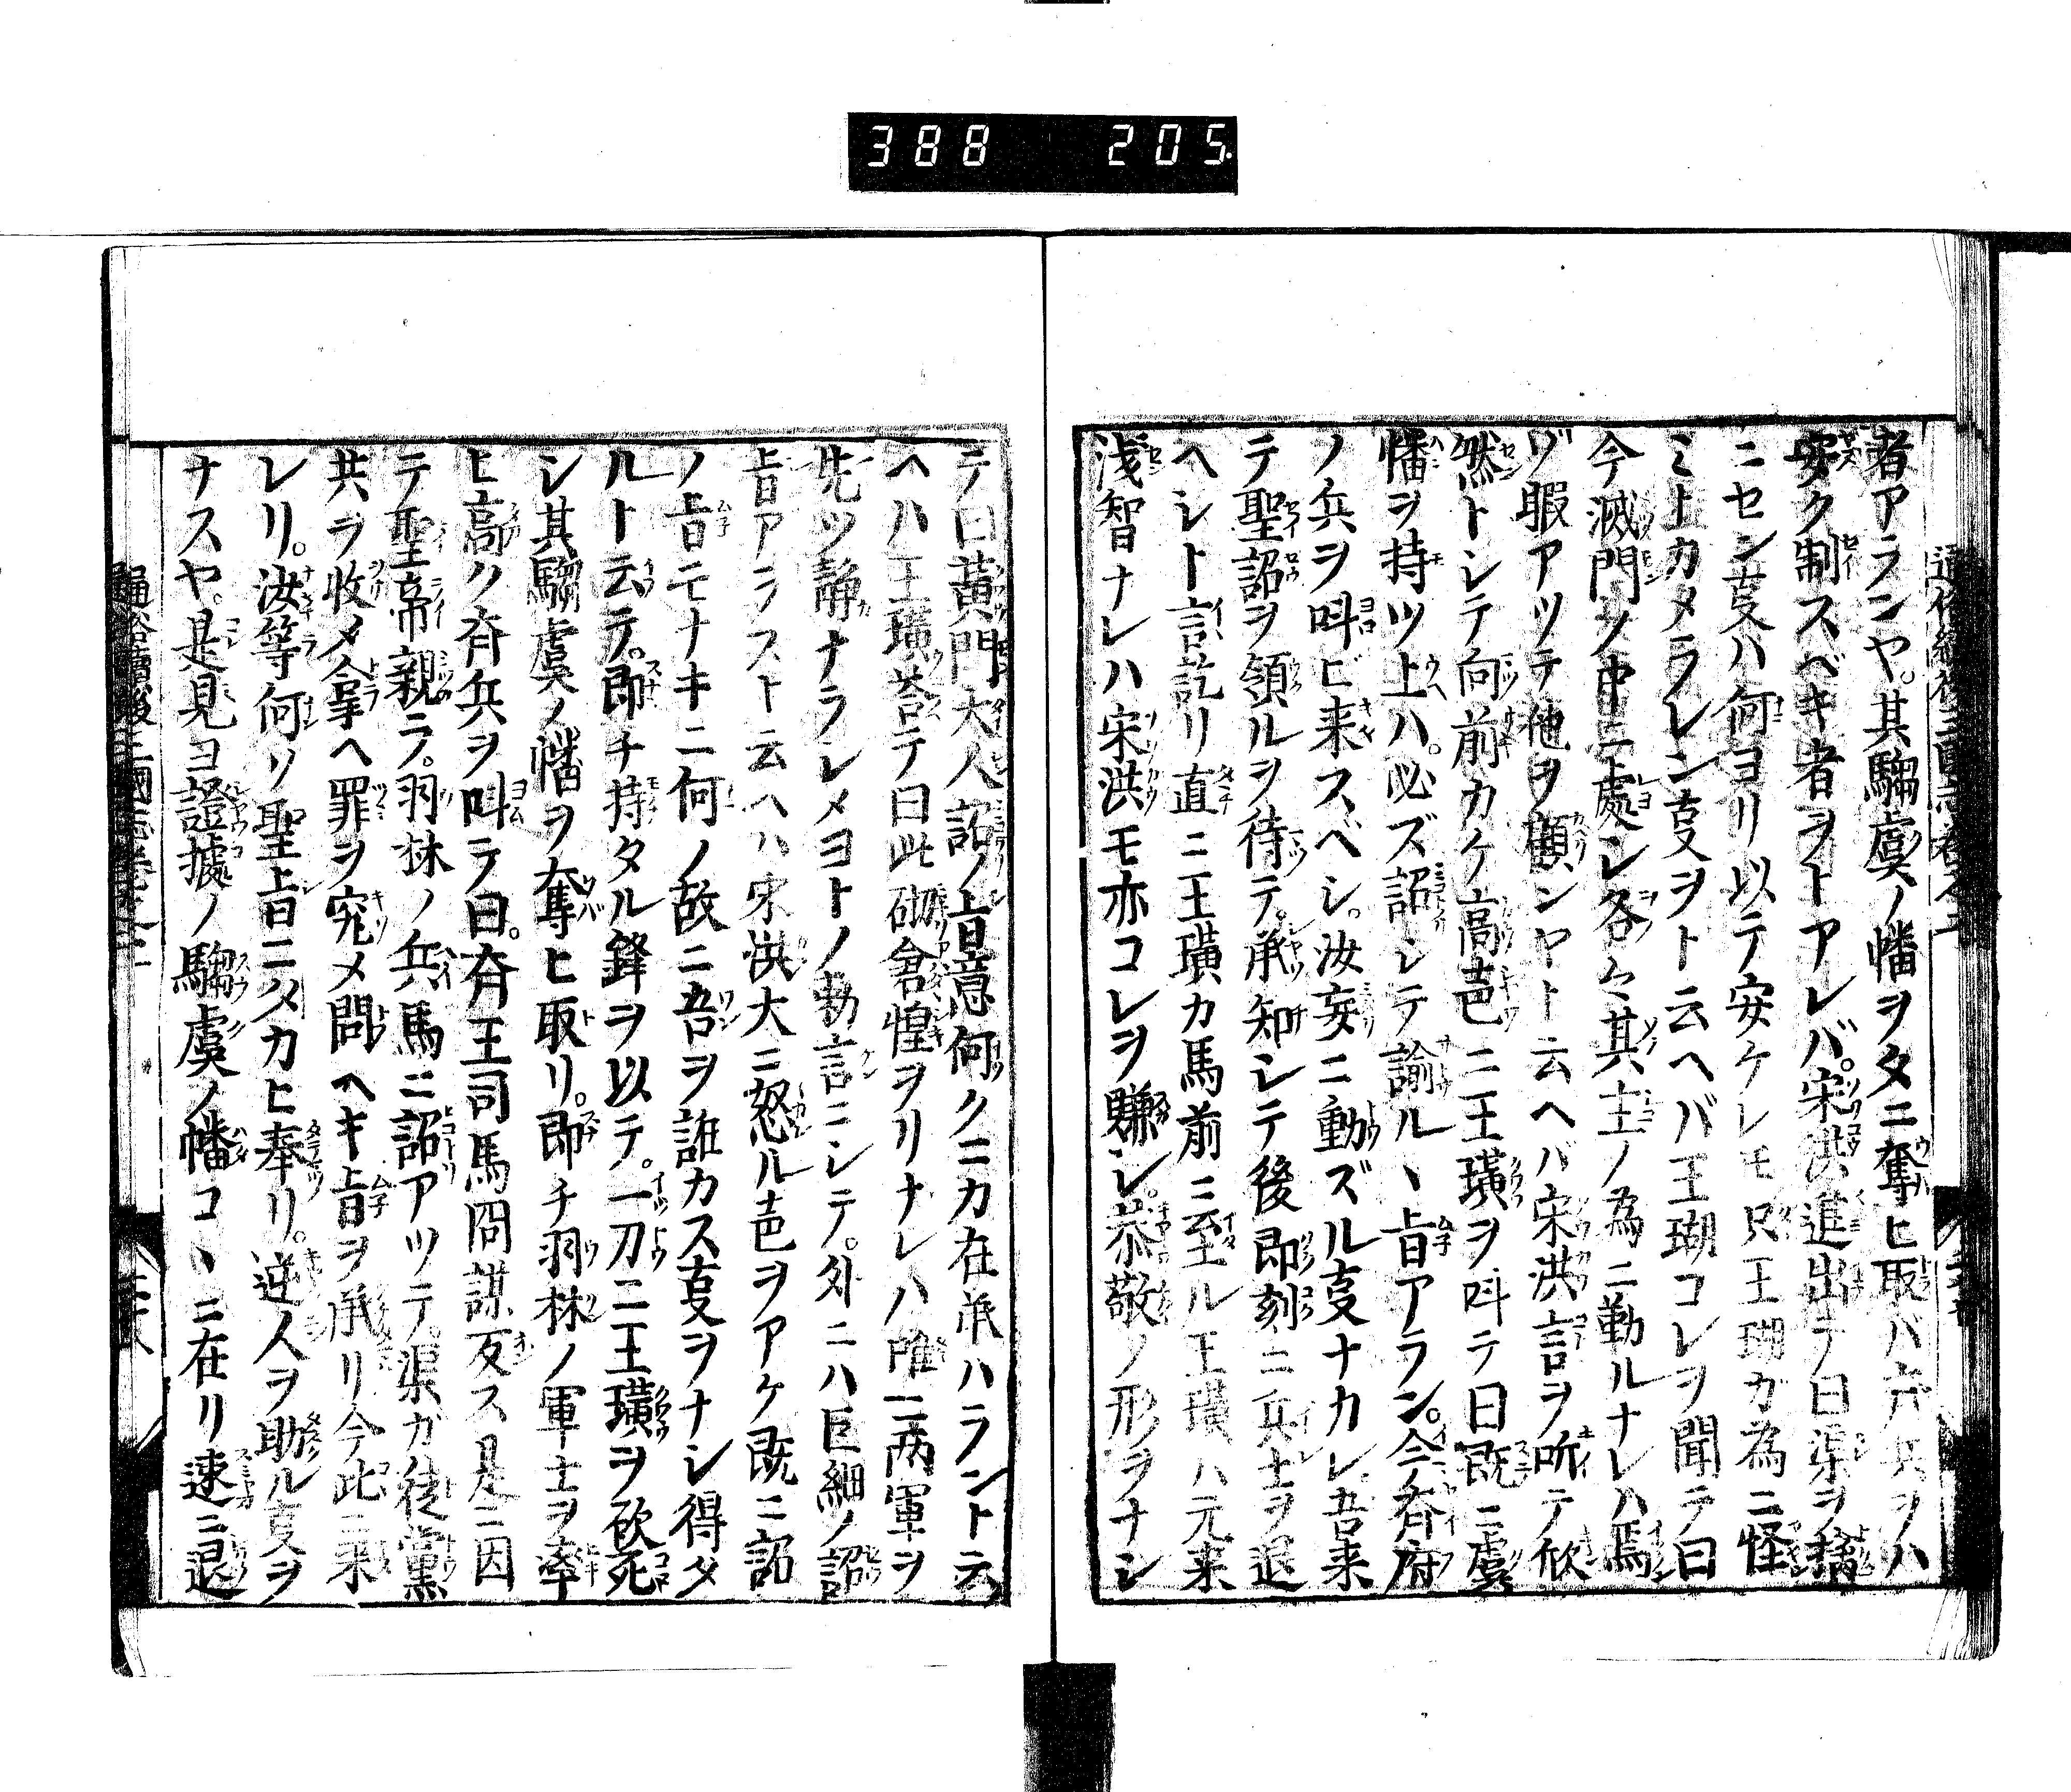 388 205
者アランヤ。其騶虞ノ幡ヲタニ奪ヒ取バ六兵ヲハ
安ク制スベキ者ヲトアレバ。宋洪進出テ曰渠ヲ擒
ニセン叓ハ何ヨリ以テ安ケレモ只王瑚ガ為ニ怪
ミトカメラレン叓ヲト云ヘバ王瑚コレヲ聞テ曰
今滅門ノ中ニ處シ各々其主ノ為ニ勤ルナレハ焉
ゾ暇アツテ他ヲ顧ンヤト云ヘバ宋洪言ヲ听テ欣
然トシテ向前カケ高声ニ王璜ヲ呌テ曰既ニ虞
幡ヲ持ツ上ハ。必ズ詔シテ諭ルヽ旨アラン。今齊府
ノ兵ヲ呌ビ来スベシ。汝妄ニ動ズル叓ナカレ吾来
テ聖詔ヲ領ルヲ待テ。承知シテ後即刻ニ兵士ヲ退
ヘシト言訖リ直ニ王璜カ馬前ニ至ル王璜ハ元来
浅智ナレハ宋洪モ亦コレヲ賺シ。恭敬ノ形ヲナシ
テ曰黄門大人詔ノ旨意何クニカ在承ハラント云
ヘハ王璜荅テ曰此砌倉惶ヲリナレハ唯二両軍ヲ
先ツ静ナラシメヨトノ勅言ニシテ。外ニハ巨細ノ詔
旨アラストト云ヘハ宋洪大ニ怒ル声ヲアケ既ニ詔
ノ旨モナキニ何ノ故ニ吾ヲ誑カス叓ヲナシ得タ
ルト云テ。即チ持タル鋒ヲ以テ。一刀ニ王璜ヲ砍死
シ其騶虞ノ幡ヲ奪ヒ取リ。即チ羽林ノ軍士ヲ率
ヒ高ク齊兵ヲ呌テ曰。齊王司馬冏謀反ス是ニ因
テ聖帝親ラ。羽林ノ兵馬ニ詔アツテ。渠ガ徒黨
共ヲ收メ拿ヘ罪ヲ究メ問ヘキ旨ヲ承リ今此ニ来
レリ。汝等何ソ聖旨ニメカヒ奉リ。逆人ヲ助ル叓ヲ
ナスヤ。是見ヨ證據ノ騶虞ノ幡コヽニ在リ速ニ退